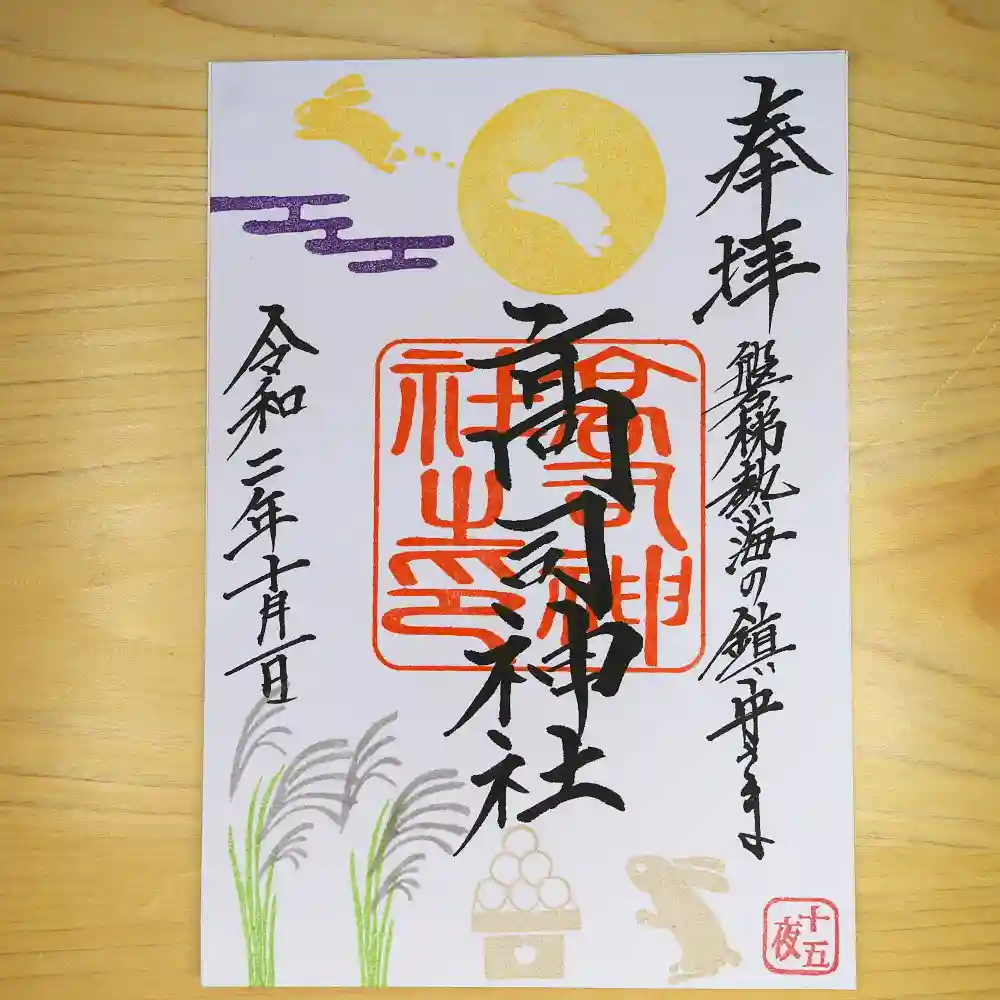 奉拝
磐梯熱海の鎮守さま
高司神社
高司神社之印
令和二年十月一日
十五夜